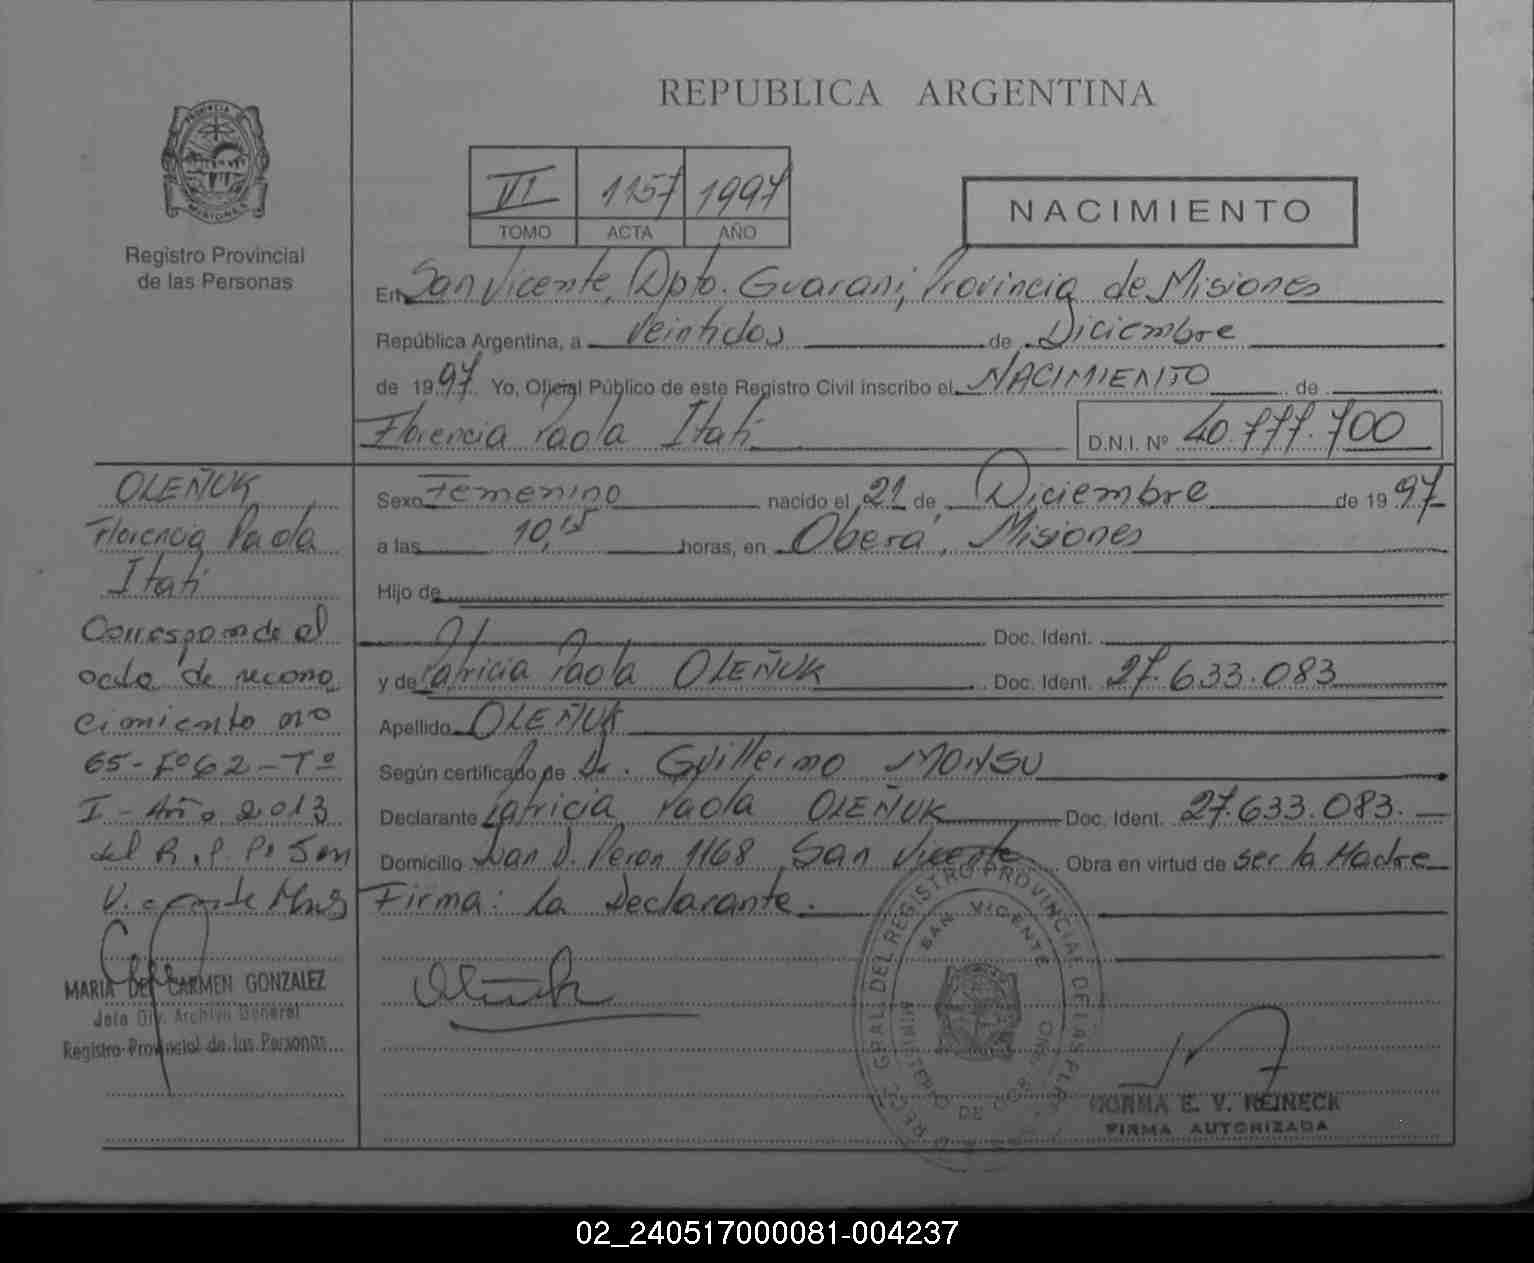 REPUBLICA ARGENTINA
PROVINCIA DE
MISIONES
Registro Provincial
de las Personas
VI 1157 1997
TOMO ACTA AÑO
NACIMIENTO
En San Vicente, Dpto. Guarani, Provincia de Misiones
República Argentina, a Veintidos de Diciembre
de 1997 Yo, Oficial Público de este Registro Civil inscribo el NACIMIENTO de
Florencia Paola Itati D.N.I. Nº 40.777.700
Sexo Femenino nacido el 21 de Diciembre de 1997
a las 10,15 horas, en Oberá, Misiones
Hijo de
Doc. Ident.
y de Patricia Paola OLEÑUK Doc. Ident. 27.633.083
Apellido OLEÑUK
Según certificado de Dr. Guillermo MONSU
Declarante Patricia Paola OLEÑUK Doc. Ident. 27.633.083.
Domicilio Juan D. Peron 1168 San Vicente Obra en virtud de ser la Madre
Firma: La Declarante.
OLEÑUK
Florencia Paola
Itati
Corresponde al
acta de recono
cimiento nº
65-Fº62-Tº
I-Año 2013
del R.P.P. San
Vicente Mnes
MARIA DEL CARMEN GONZALEZ
Jefa Div. Archivo General
Registro Provincial de las Personas
DEL REGISTRO PROVINCIAL DE LAS
SAN VICENTE
NORMA E. V. REINECK
FIRMA AUTORIZADA
02_240517000081-004237